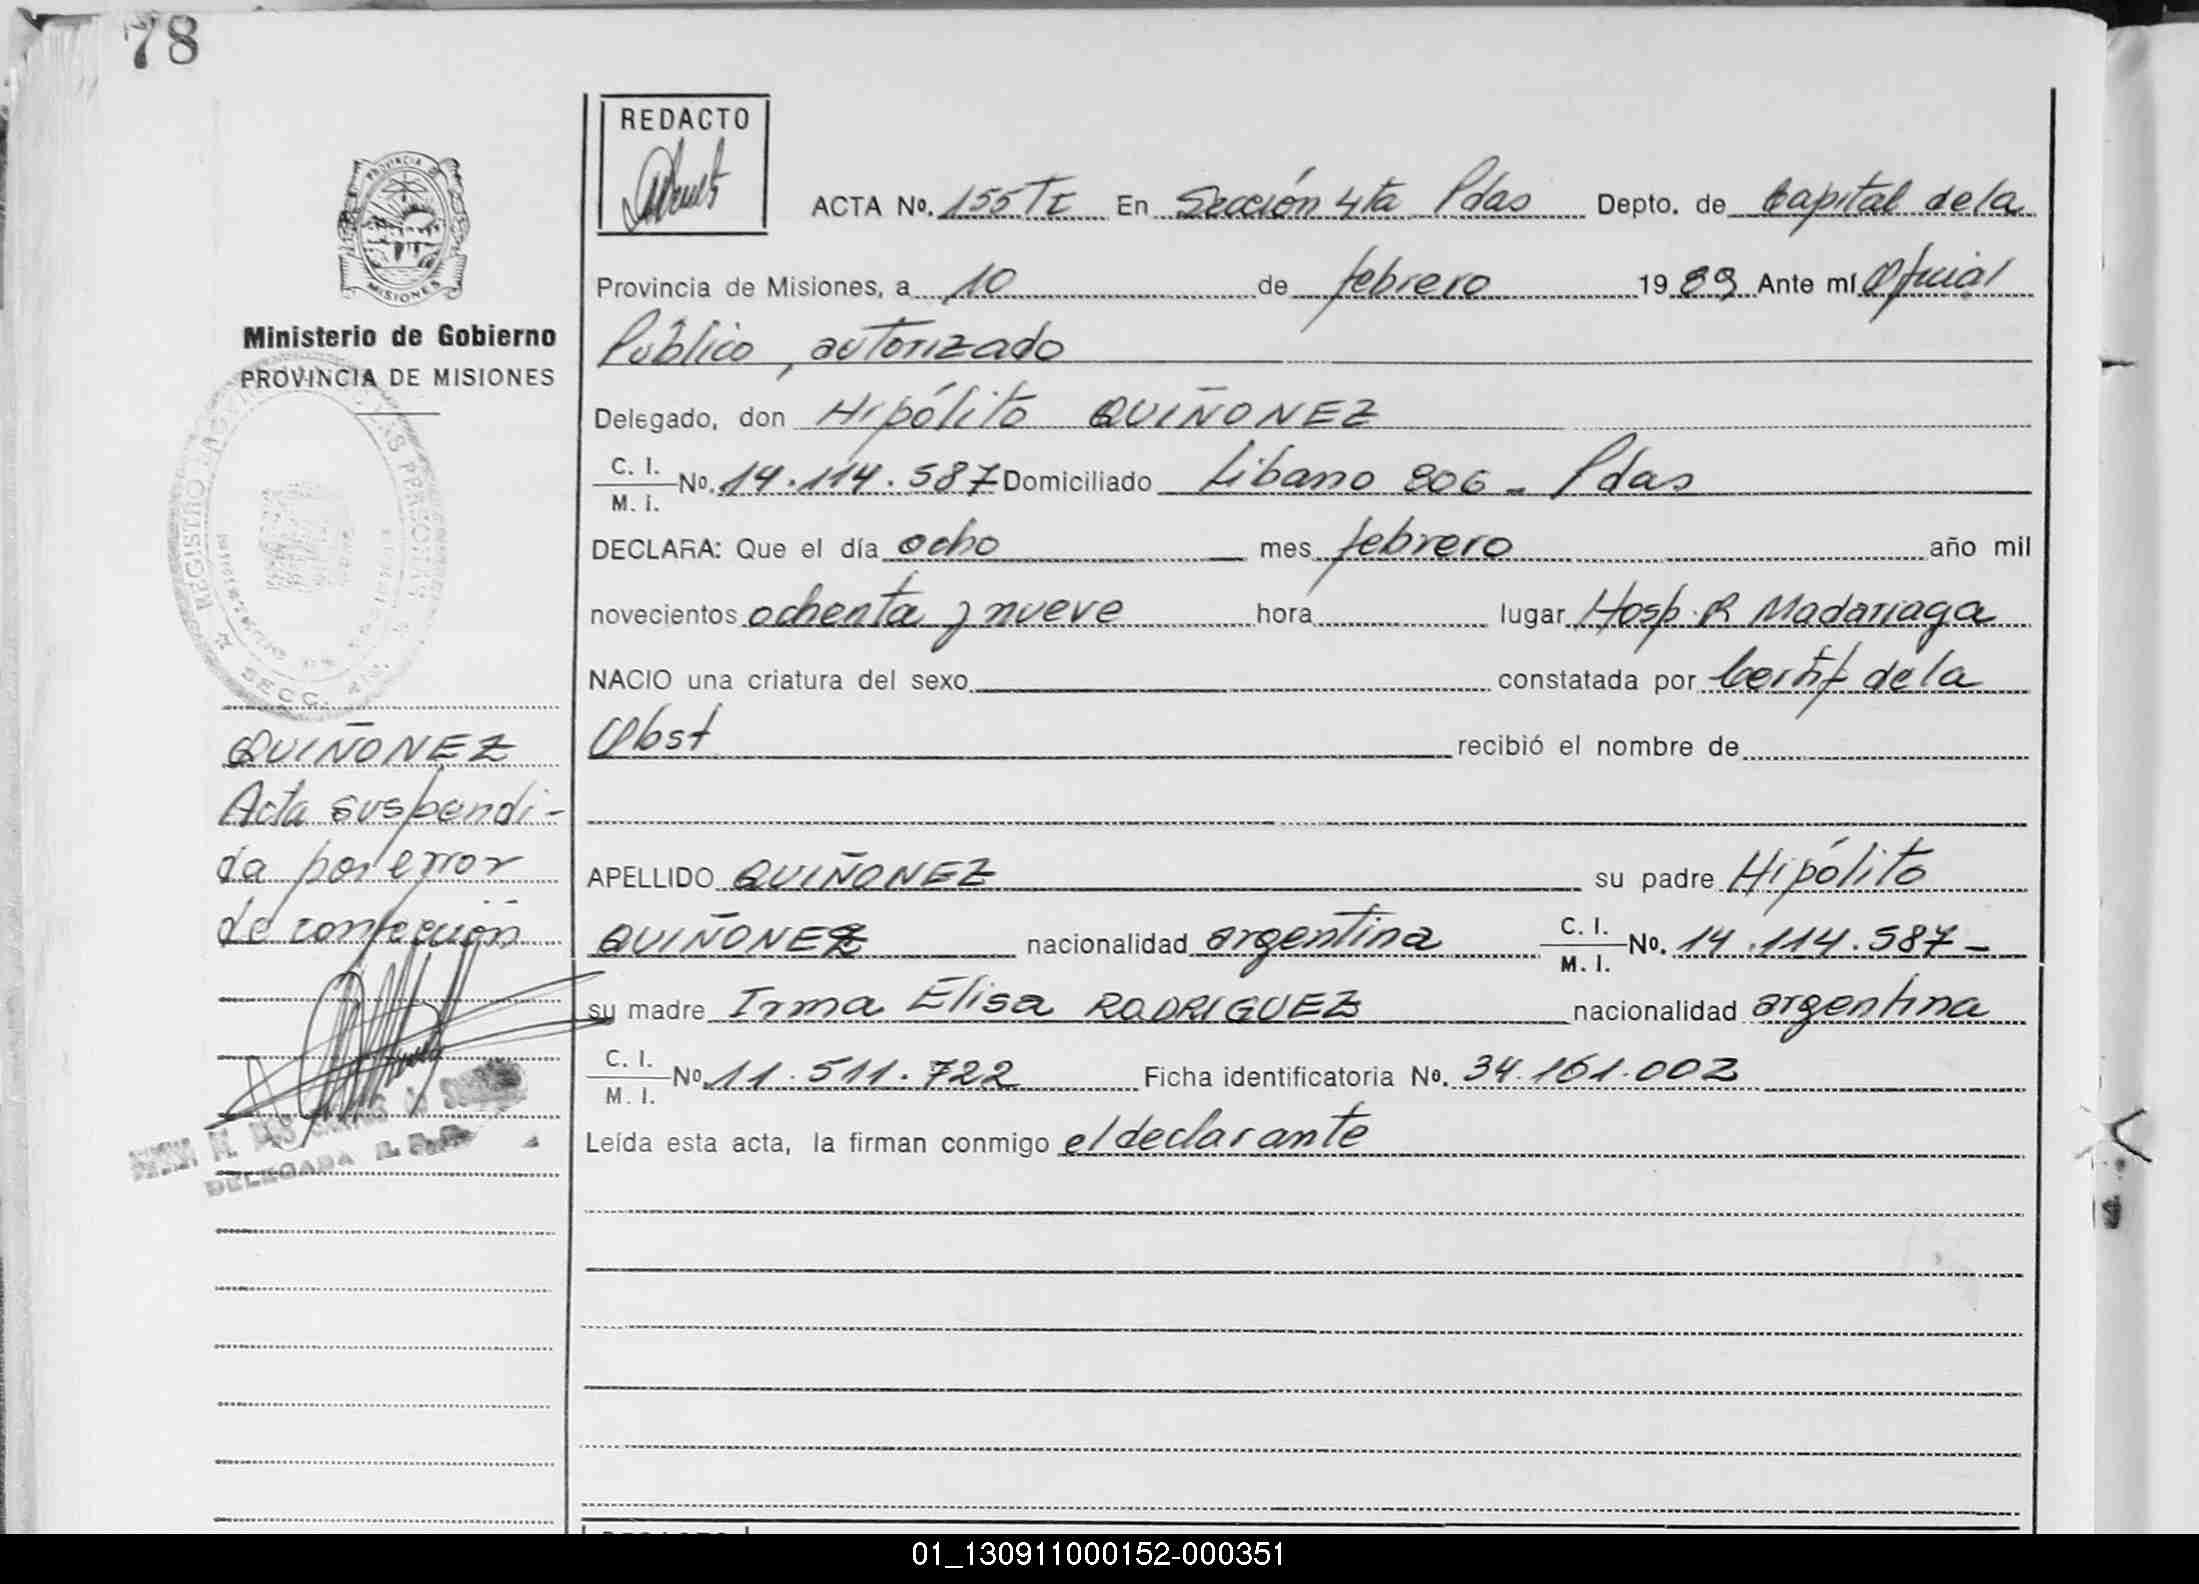 78
REDACTO
ACTA No. 155 TI En Sección 4ta Pdas Depto. de Capital de la
Provincia de Misiones, a 10 de febrero 1989 Ante mí Oficial
Público, autorizado
Delegado, don Hipólito QUIÑONEZ
C. I. / M. I. No. 14.114.587 Domiciliado Libano 806 - Pdas
DECLARA: Que el día ocho mes febrero año mil
novecientos ochenta y nueve hora lugar Hosp. R Madariaga
NACIO una criatura del sexo constatada por Certif de la
Obst recibió el nombre de
APELLIDO QUIÑONEZ su padre Hipólito
QUIÑONEZ nacionalidad argentina C. I. / M. I. No. 14.114.587-
su madre Irma Elisa RODRIGUEZ nacionalidad argentina
C. I. / M. I. No. 11.511.722 Ficha identificatoria No. 34.161.002
Leída esta acta, la firman conmigo el declarante
PROVINCIA DE
MISIONES
Ministerio de Gobierno
PROVINCIA DE MISIONES
REGISTRO LAS PERSONAS
SECC. 4
QUIÑONEZ
Acta suspendi-
da por error
de confección
DELEGADA
01_130911000152-000351